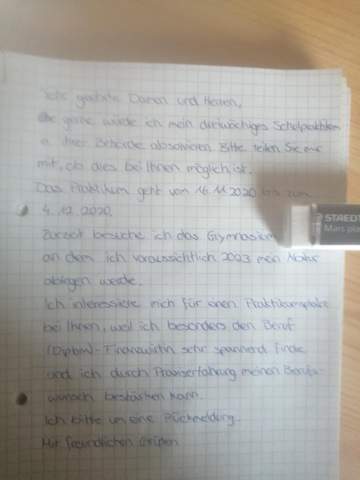 Sehr geehrte Damen und Herren,
sehr gerne würde ich mein dreiwöchiges Schulpraktikum
in Ihrer Behörde absolvieren. Bitte teilen Sie mir
mit, ob dies bei Ihnen möglich ist.
Das Praktikum geht vom 16.11.2020 bis zum
4.12.2020.
Zurzeit besuche ich das Gymnasium
an dem ich voraussichtlich 2023 mein Abitur
ablegen werde.
Ich interessiere mich für einen Praktikumsplatz
bei Ihnen, weil ich besonders den Beruf
(Diplom)-Finanzwirtin sehr spannend finde
und ich durch Praxiserfahrung meinen Berufs-
wunsch bestärken kann.
Ich bitte um eine Rückmeldung.
Mit freundlichen Grüßen
STAEDT
Mars pla